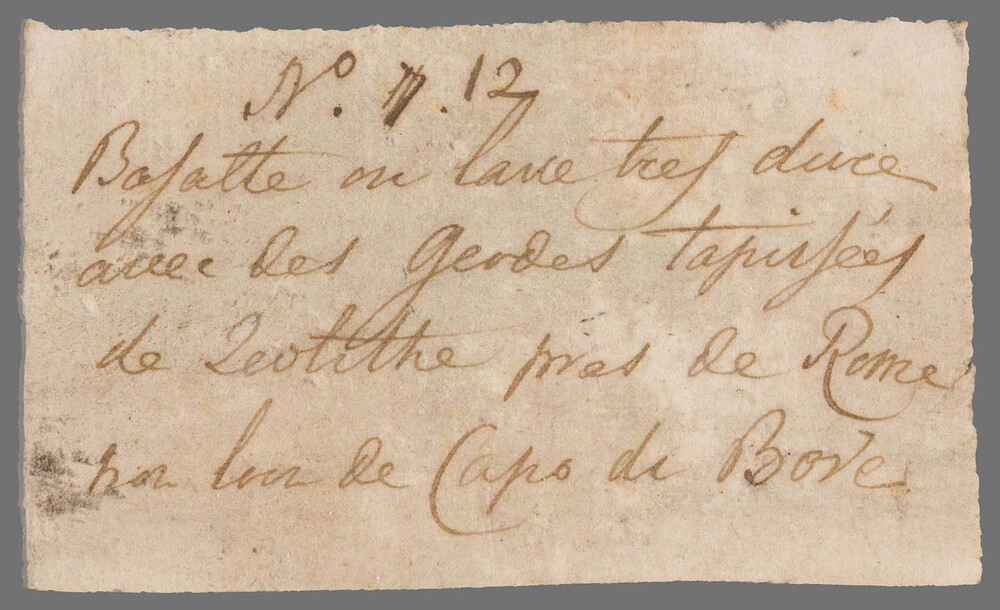 No. 12
Basalte ou lave tres dure
avec des Geodes tapissées
de Zeolithe pres de Rome
non loin de Capo di Bove